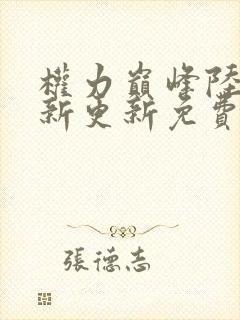 權力巔峰陸
新更新免費
張德志